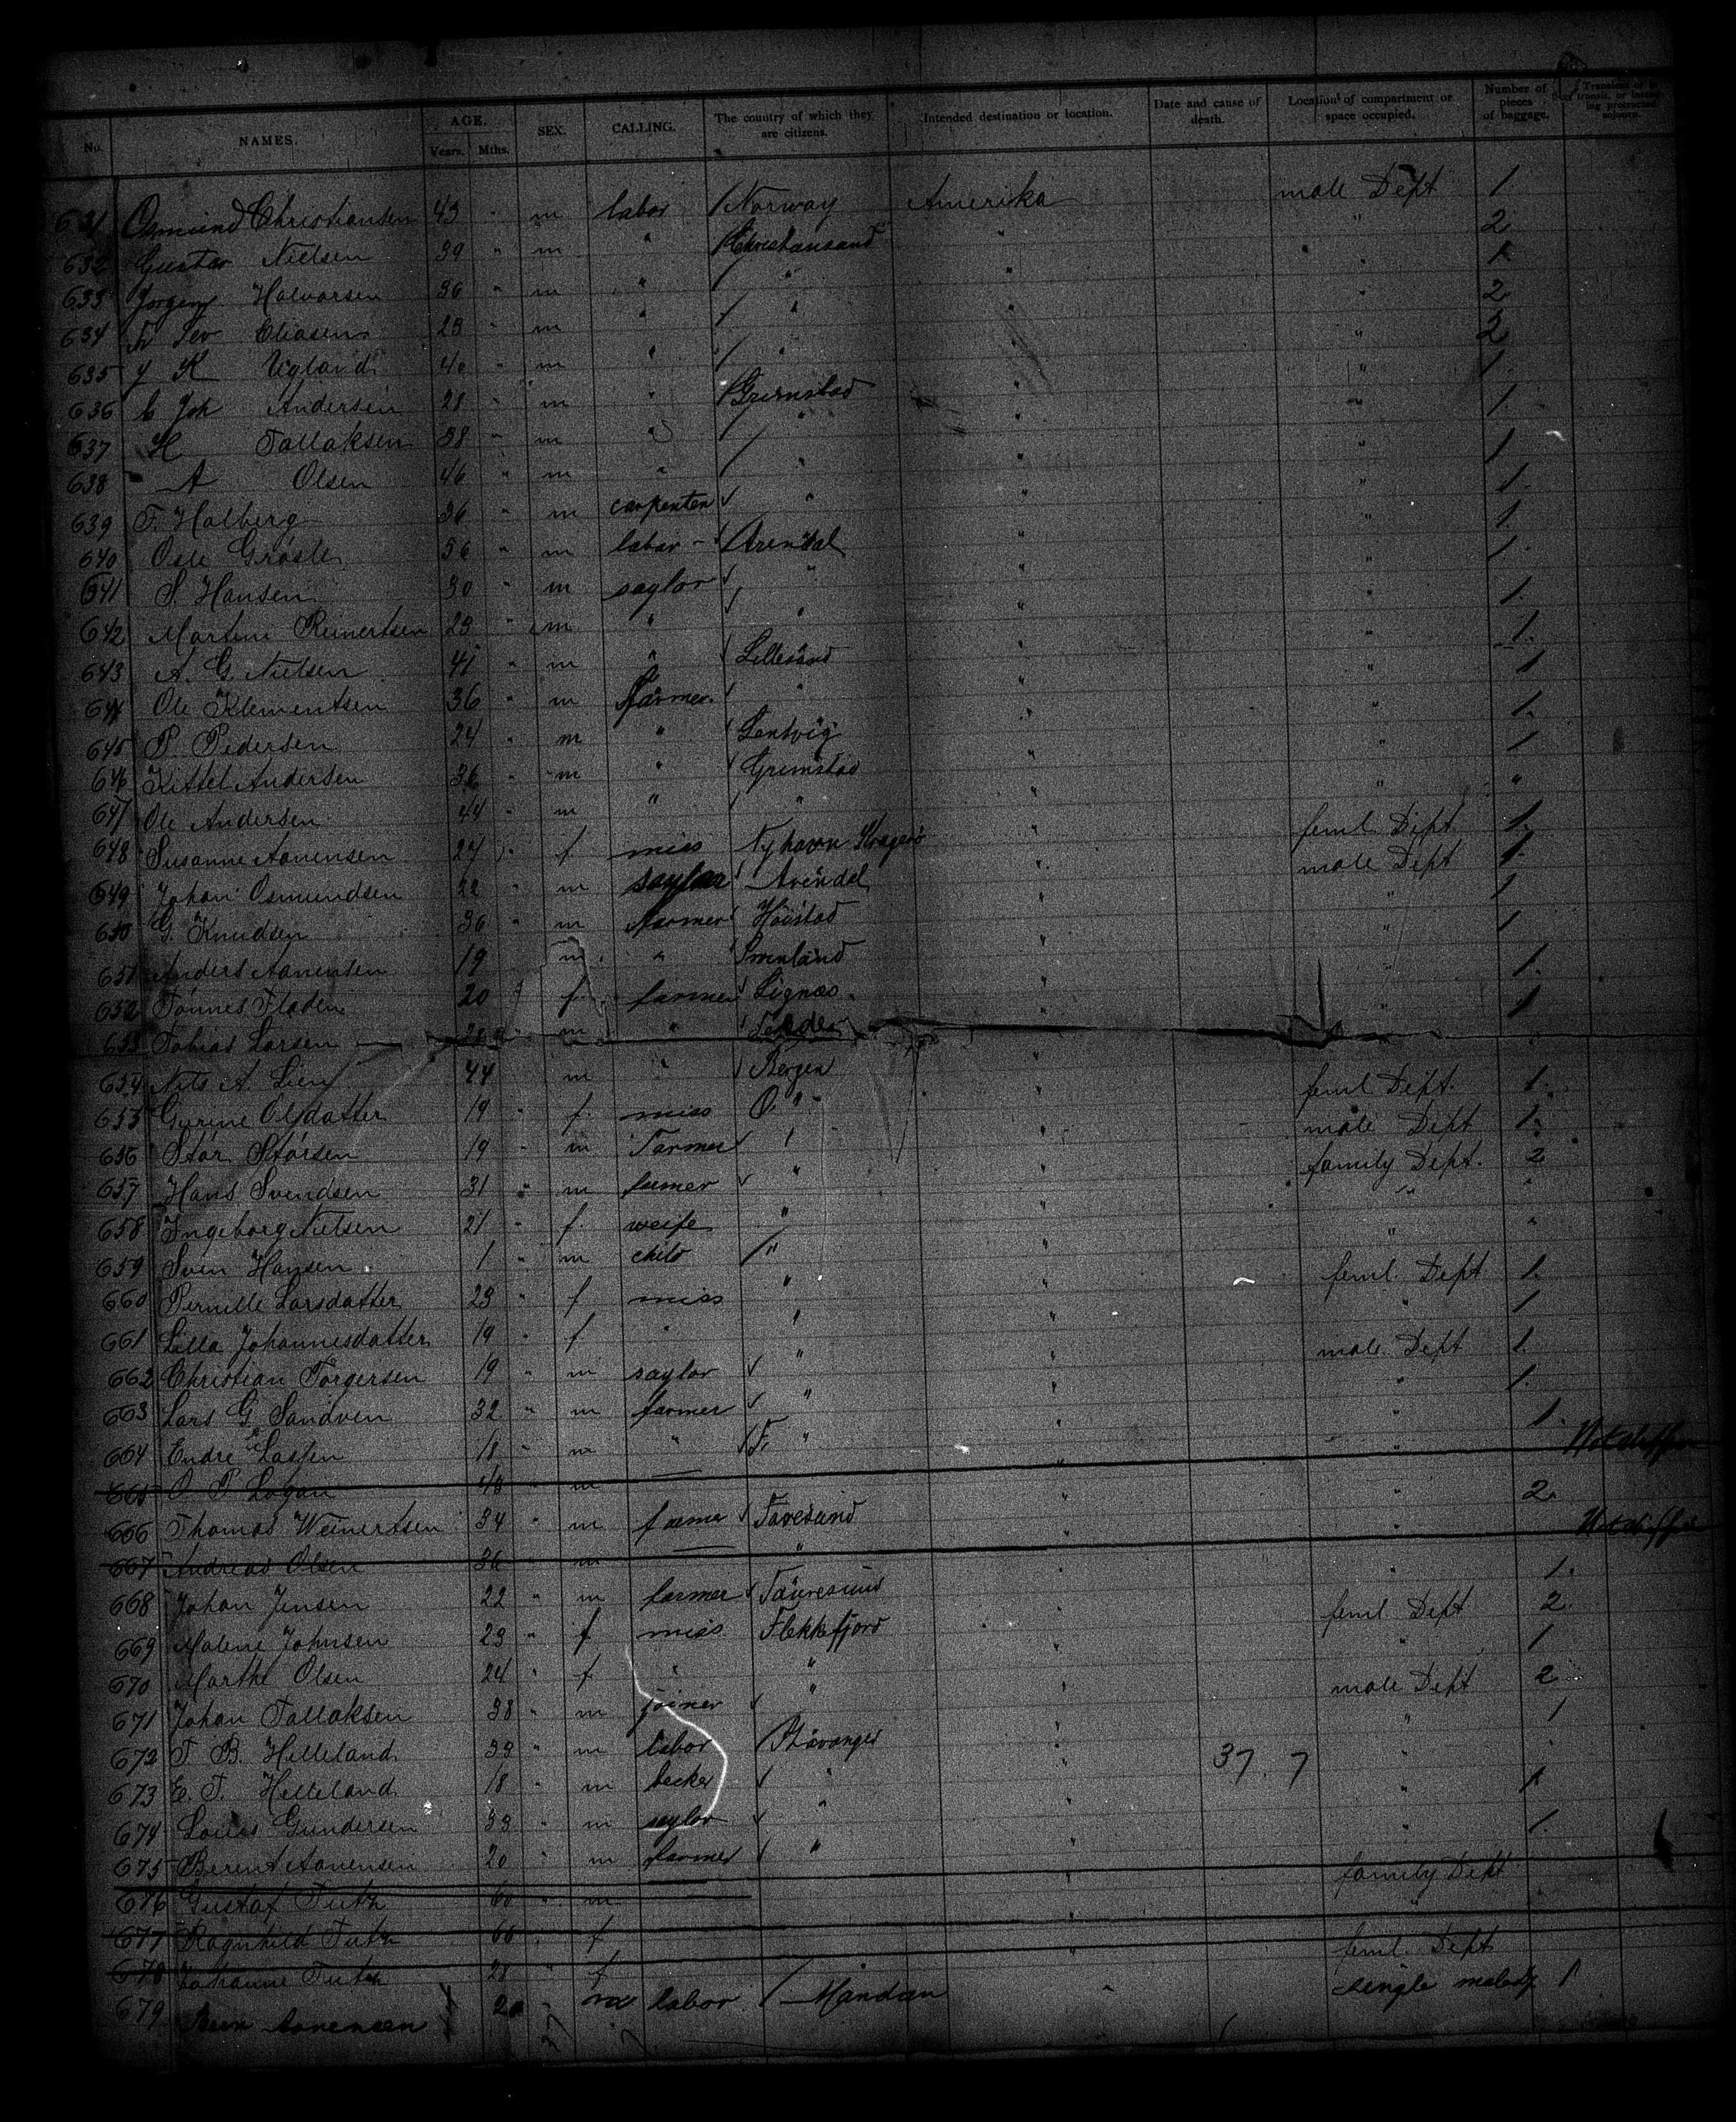 No. NAMES. AGE. Years. Mths. SEX. CALLING. The country of which they are citizens. Intended destination or location. Date and cause of death. Location of compartment or space occupied. Number of pieces of baggage. Transient or in transit, or intending protracted sojourn.
631 Osmund Christiansen 43 " m labor / Norway Amerika male Dept 1
632 Gustav Nielsen 39 " m " / Christiansand " " 2
633 Jorgen Halvorsen 36 " m " / " " " 1
634 Sev Eliasen 23 " m " / " " " 2
635 J K Ugland 40 " m " / " " 2
636 C Joh Andersen 28 " m " / Grimstad " " 1
637 H Tallaksen 38 " m " / " " " 1
638 A Olsen 46 " m " / " " " 1
639 F. Holberg 36 " m carpenter " " " 1
640 Osle Grosle 56 " m labor Arendal " " 1
641 S. Hansen 30 " m saylor " " 1
642 Martin Reinertsen 23 " m " " " " 1
643 A. G. Nielsen 41 " m " Lillesand " " 1
644 Ole Klementsen 36 " m farmer " " " 1
645 P. Pedersen 24 " m " " " 1
646 Kittel Andersen 36 " m " Grimstad " " 1
647 Ole Andersen 44 " m " " " " "
648 Susanne Aanensen 27 " f. miss Nyhavn Kragerö " feml Dept 1.
649 Johan Osmundsen 22 " m saylor Arendal " male Dept 1
650 G. Knudsen 36 " m farmer " " 1
651 Anders Aanensen 19 m " " " 1
652 Tönnes Fladen 20 f. farmer Lignæs " " 1.
653 Tobias Larsen m " " " 1
654 Nils A. Lien 44 m " Bergen "
655 Gurine Olsdatter 19 " f. miss " " feml Dept. 1.
656 Stör Störsen 19 " m Farmer " male Dept 1.
657 Hans Svendsen 31 " m farmer " " family Dept. 2
658 Ingeborg Nielsen 21 " f. weife " " " "
659 Sven Hansen 1 " m child / " " " "
660 Pernille Larsdatter 23 " f miss " " feml. Dept 1.
661 Lilla Johannesdatter 19 " f " " " " 1
662 Christian Torgersen 19 " m saylor " " male. Dept 1.
663 Lars G. Sandven 32 " m farmer " " " 1.
664 Endre 18 " m " " " 1.
665 O. P. Logan 48 " m " "
666 Thomas Weinertsen 34 " m farmer Faresund " " 2.
667 Andreas Olsen 36 " m " " "
668 Johan Jensen 22 " m farmer " " 1.
669 Malene Johnsen 23 " f miss Flekkefjord " feml. Dept 2.
670 Marthe Olsen 24 " f " " " " 1
671 Johan Tallaksen 38 " m joiner " " male Dept 2
672 T. B. Helleland 33 " m labor Stavanger " " 1
673 E. T. Helleland 18 " m becker " " 37. 7 " "
674 Louis Gundersen 33 " m saylor " " " 1
675 Berent Aanensen 20 " m farmer " " " 1
676 Gustaf 60 " m " family Dept
677 Ragnhild 60 " f "
678 Johanne 28 " f " feml. Dept
679 Bern Aanensen 20 " m labor / Mandan " single male 1